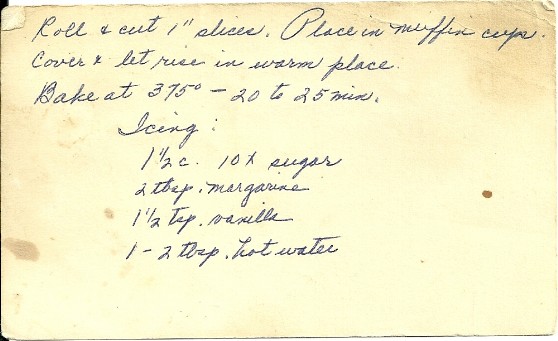 Roll & cut 1" slices. Place in muffin cups.
Cover & let rise in warm place.
Bake at 375° - 20 to 25 min.
Icing:
1 1/2 c. 10X sugar
2 tbsp. margarine
1 1/2 tsp. vanilla
1 - 2 tbsp. hot water